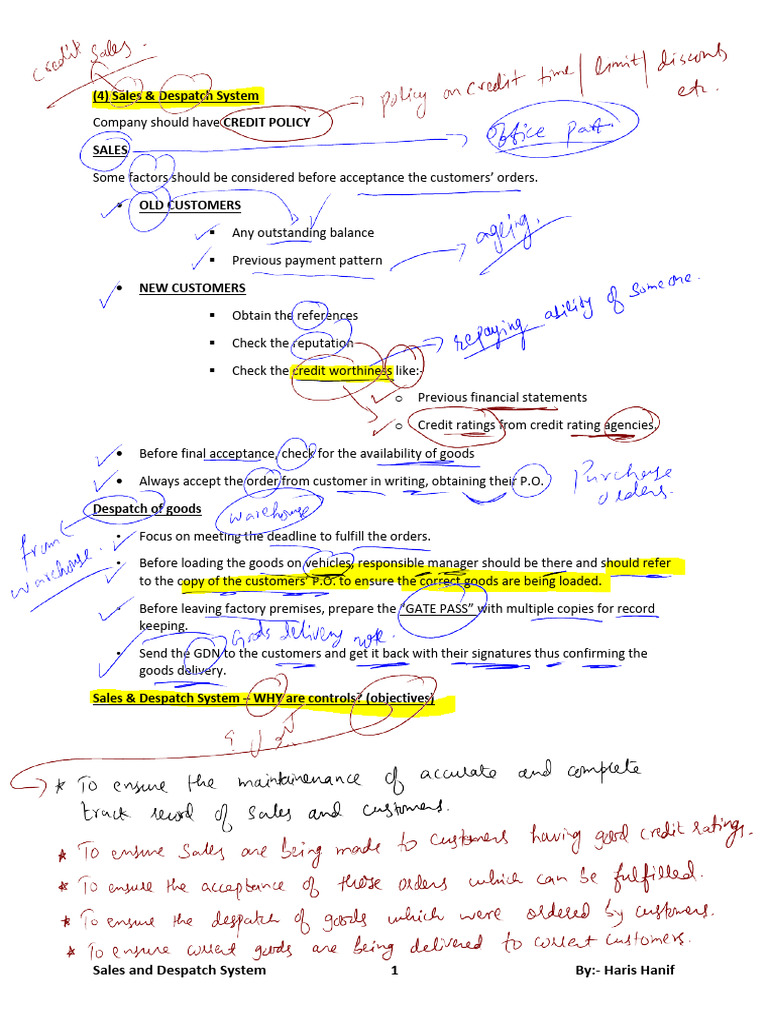 Credit Sales.
(4) Sales & Despatch System
policy on credit time/ limit/ discounts
etc.
Company should have CREDIT POLICY
SALES
Office part.
Some factors should be considered before acceptance the customers’ orders.
• OLD CUSTOMERS
▪ Any outstanding balance
ageing.
▪ Previous payment pattern
• NEW CUSTOMERS
▪ Obtain the references
repaying ability of someone.
▪ Check the reputation
▪ Check the credit worthiness like:-
o Previous financial statements
o Credit ratings from credit rating agencies.
• Before final acceptance, check for the availability of goods
• Always accept the order from customer in writing, obtaining their P.O.
Purchase
orders.
Despatch of goods
warehouse
from
warehouse.
• Focus on meeting the deadline to fulfill the orders.
• Before loading the goods on vehicles, responsible manager should be there and should refer
to the copy of the customers’ P.O. to ensure the correct goods are being loaded.
• Before leaving factory premises, prepare the “GATE PASS” with multiple copies for record
keeping.
Goods delivery note.
• Send the GDN to the customers and get it back with their signatures thus confirming the
goods delivery.
Sales & Despatch System – WHY are controls? (objectives)
* To ensure the maintainenance of accurate and complete
track record of sales and customers.
* To ensure sales are being made to customers having good credit ratings.
* To ensure the acceptance of those orders which can be fulfilled.
* To ensure the despatch of goods which were ordered by customers.
* To ensure correct goods are being delivered to correct customers.
Sales and Despatch System 1 By:- Haris Hanif